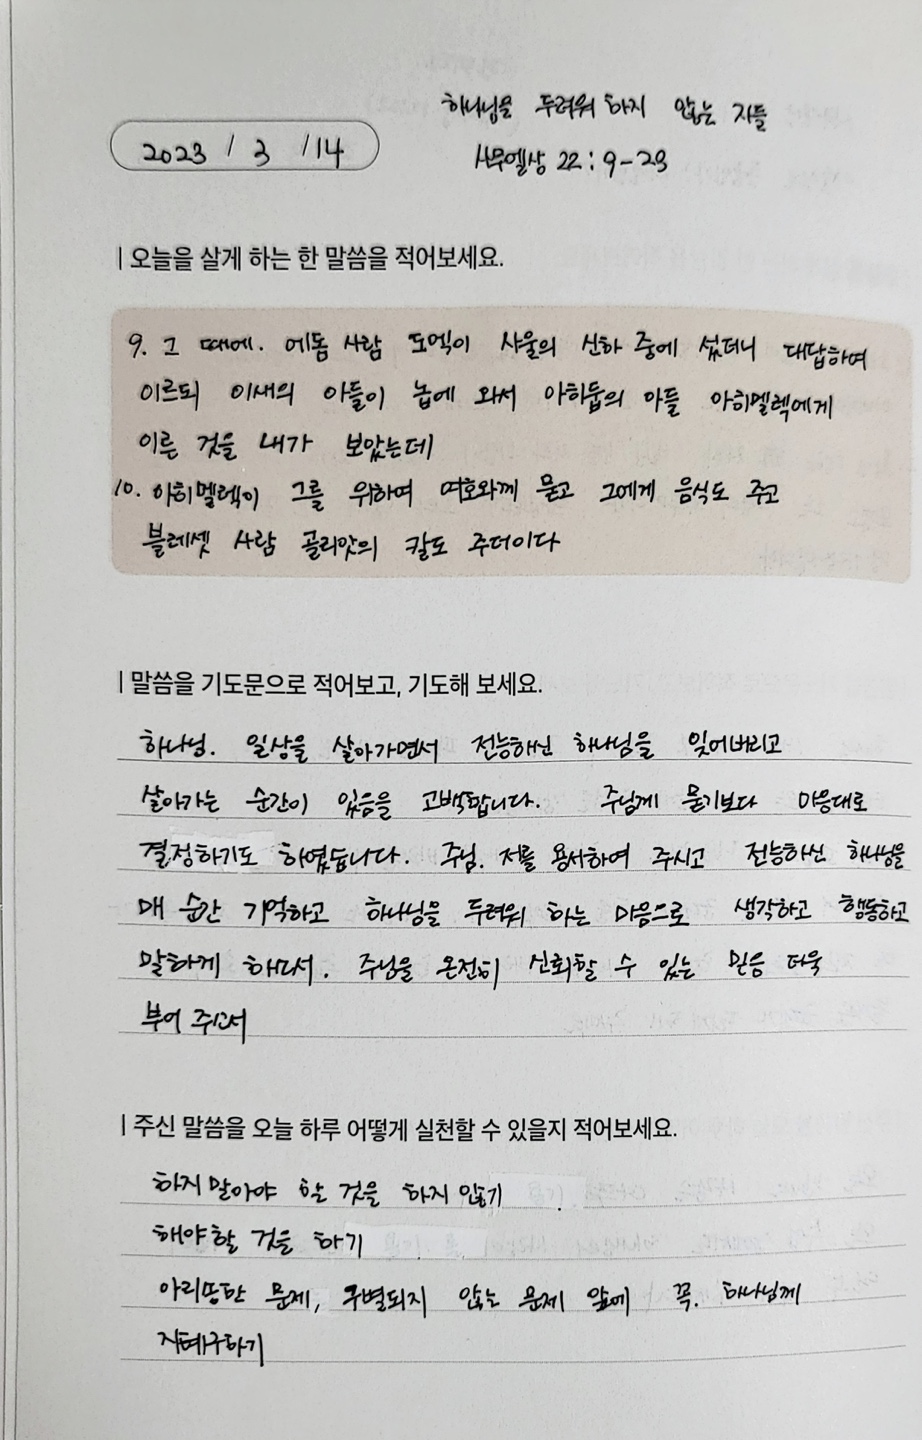 하나님을 두려워 하지 않는 자들
2023 / 3 / 14
사무엘상 22 : 9-23
| 오늘을 살게 하는 한 말씀을 적어보세요.
9. 그 때에. 에돔 사람 도엑이 사울의 신하 중에 섰더니 대답하여
이르되 이새의 아들이 놉에 와서 아히둡의 아들 아히멜렉에게
이른 것을 내가 보았는데
10. 아히멜렉이 그를 위하여 여호와께 묻고 그에게 음식도 주고
블레셋 사람 골리앗의 칼도 주더이다
| 말씀을 기도문으로 적어보고, 기도해 보세요.
하나님. 일상을 살아가면서 전능하신 하나님을 잊어버리고
살아가는 순간이 있음을 고백합니다. 주님께 묻기보다 마음대로
결정하기도 하였습니다. 주님. 저를 용서하여 주시고 전능하신 하나님을
매 순간 기억하고 하나님을 두려워 하는 마음으로 생각하고 행동하고
말하게 하소서. 주님을 온전히 신뢰할 수 있는 믿음 더욱
부어 주소서
| 주신 말씀을 오늘 하루 어떻게 실천할 수 있을지 적어보세요.
하지 말아야 할 것을 하지 않기
해야할 것을 하기
아리쏭한 문제, 구별되지 않는 문제 앞에 꼭. 하나님께
지혜구하기